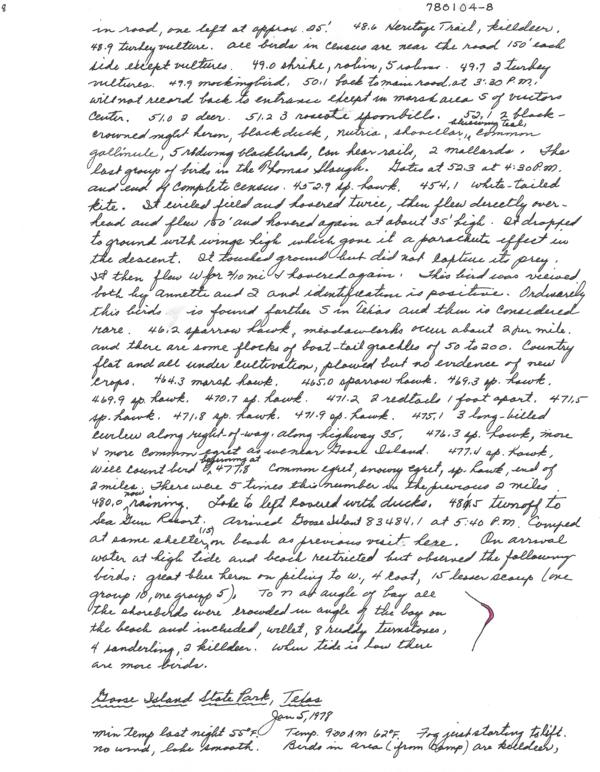 8
780104-8
in road, one left at approx. 25'. 48.6 Heritage Trail, killdeer.
48.9 turkey vulture. All birds in census are near the road 150' each
side except vultures. 49.0 shrike, robin, 5 robins. 49.7 2 turkey
vultures. 49.9 mockingbird. 50.1 back to main road at 3:30 P.M.
will not record back to entrance except in marsh area S of visitors
Center. 51.0 2 deer. 51.2 3 roseate spoonbills. 52.1 2 black-
crowned night heron, black duck, nutria, shoveller, common
gallinule, 5 redwing blackbirds, can hear rails, 2 mallards. The
last group of birds in the Thomas Slough. Gates at 52.3 at 4:30 P.M.
and end of complete census. 452.9 sp. hawk. 454.1 white-tailed
kite. It circled field and hovered twice, then flew directly over-
head and flew 150' and hovered again at about 35' high. It dropped
to ground with wings high which gave it a parachute effect in
the descent. It touched ground but did not capture its prey.
It then flew W for 2/10 mi & hovered again. This bird was viewed
both by Annette and I and identification is positive. Ordinarily
this bird is found farther S in Texas and then is considered
rare. 46.2 sparrow hawk, meadowlarks occur about 2 per mile.
and there are some flocks of boat-tail grackles of 50 to 200. Country
flat and all under cultivation, plowed but no evidence of new
crops. 464.3 marsh hawk. 465.0 sparrow hawk. 469.3 sp. hawk.
469.9 sp. hawk. 470.7 sp. hawk. 471.2 2 redtails 1 foot apart. 471.5
sp. hawk. 471.8 sp. hawk. 471.9 sp. hawk. 475.1 3 long-billed
curlew along right-of-way along highway 35. 476.3 sp. hawk, more
& more common egret as we near Goose Island. 477.4 sp. hawk,
will count bird beginning at 477.8 Common egret, snowy egret, sp. hawk, end of
2 miles. There were 5 times this number in the previous 2 miles.
480.0 now raining. Lake to left covered with ducks. turnoff to
Sea Gun Resort. Arrived Goose Island 83484.1 at 5:40 P.M. Camped
at same shelter (15) on beach as previous visit here. On arrival
water at high tide and beach restricted but observed the following
birds: great blue heron on piling to W, 4 coot, 15 lesser scaup (one
group 10, one group 5). To N at angle of bay all
the shorebirds were crowded in angle of the bay on
the beach and included, willet, 8 ruddy turnstones,
4 sanderling, 2 killdeer. When tide is low there
are more birds.
Goose Island State Park, Texas
Jan 5, 1978
min temp last night 55°F. Temp. 9:00 AM 62°F. Fog just starting to lift.
no wind, lake smooth. Birds in area (from camp) are killdeer,